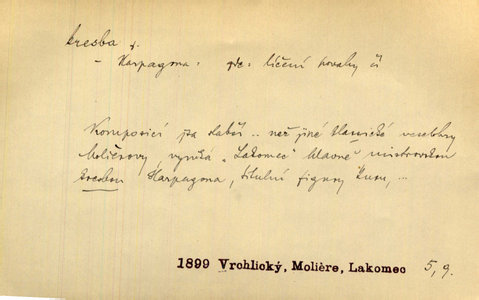 kresba f.
- Harpagona: : líčení povahy či
Komposicí .. než jiné klassické veselohry
Molièrovy, vyniká „Lakomec" hlavně mistrovskou
kresbou Harpagona, titulní figury kusu, ...
1899 Vrchlický, Molière, Lakomec 5, 9.